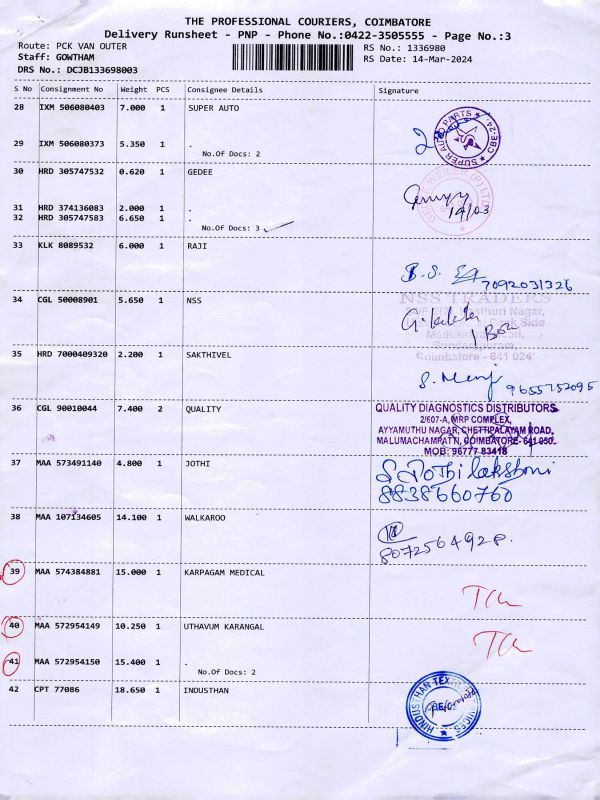 THE PROFESSIONAL COURIERS, COIMBATORE
Delivery Runsheet - PNP - Phone No.:0422-3505555 - Page No.:3
Route: PCK VAN OUTER
RS No.: 1336980
Staff: GOWTHAM
RS Date: 14-Mar-2024
DRS No.: DCJB133698003
S No Consignment No Weight PCS Consignee Details Signature
28 IXM 506080403 7.000 1 SUPER AUTO
SUPER AUTO PARTS ★ CBE-24 ★
29 IXM 506080373 5.350 1 .
No.Of Docs: 2
30 HRD 305747532 0.620 1 GEDEE
14/03
31 HRD 374136083 2.000 1 .
32 HRD 305747583 6.650 1 .
No.Of Docs: 3
33 KLK 8089532 6.000 1 RAJI
B.S. 7092031326
34 CGL 50008901 5.650 1 NSS
NSS TRADERS
1 Box
Coimbatore - 641 024
35 HRD 7000409320 2.200 1 SAKTHIVEL
9655752095
36 CGL 90010044 7.400 2 QUALITY
QUALITY DIAGNOSTICS DISTRIBUTORS
2/607-A, MRP COMPLEX,
AYYAMUTHU NAGAR, CHETTIPALAYAM ROAD,
MALUMACHAMPATN, COIMBATORE- 641 050.
MOB: 96777 83418
37 MAA 573491140 4.800 1 JOTHI
S Jothi lakshmi
8838660760
38 MAA 107134605 14.100 1 WALKAROO
8072564928.
39 MAA 574384881 15.000 1 KARPAGAM MEDICAL
40 MAA 572954149 10.250 1 UTHAVUM KARANGAL
41 MAA 572954150 15.400 1 .
No.Of Docs: 2
42 CPT 77086 18.650 1 INDUSTHAN